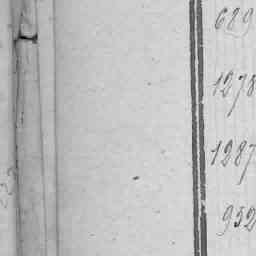 689
1278
1287
952